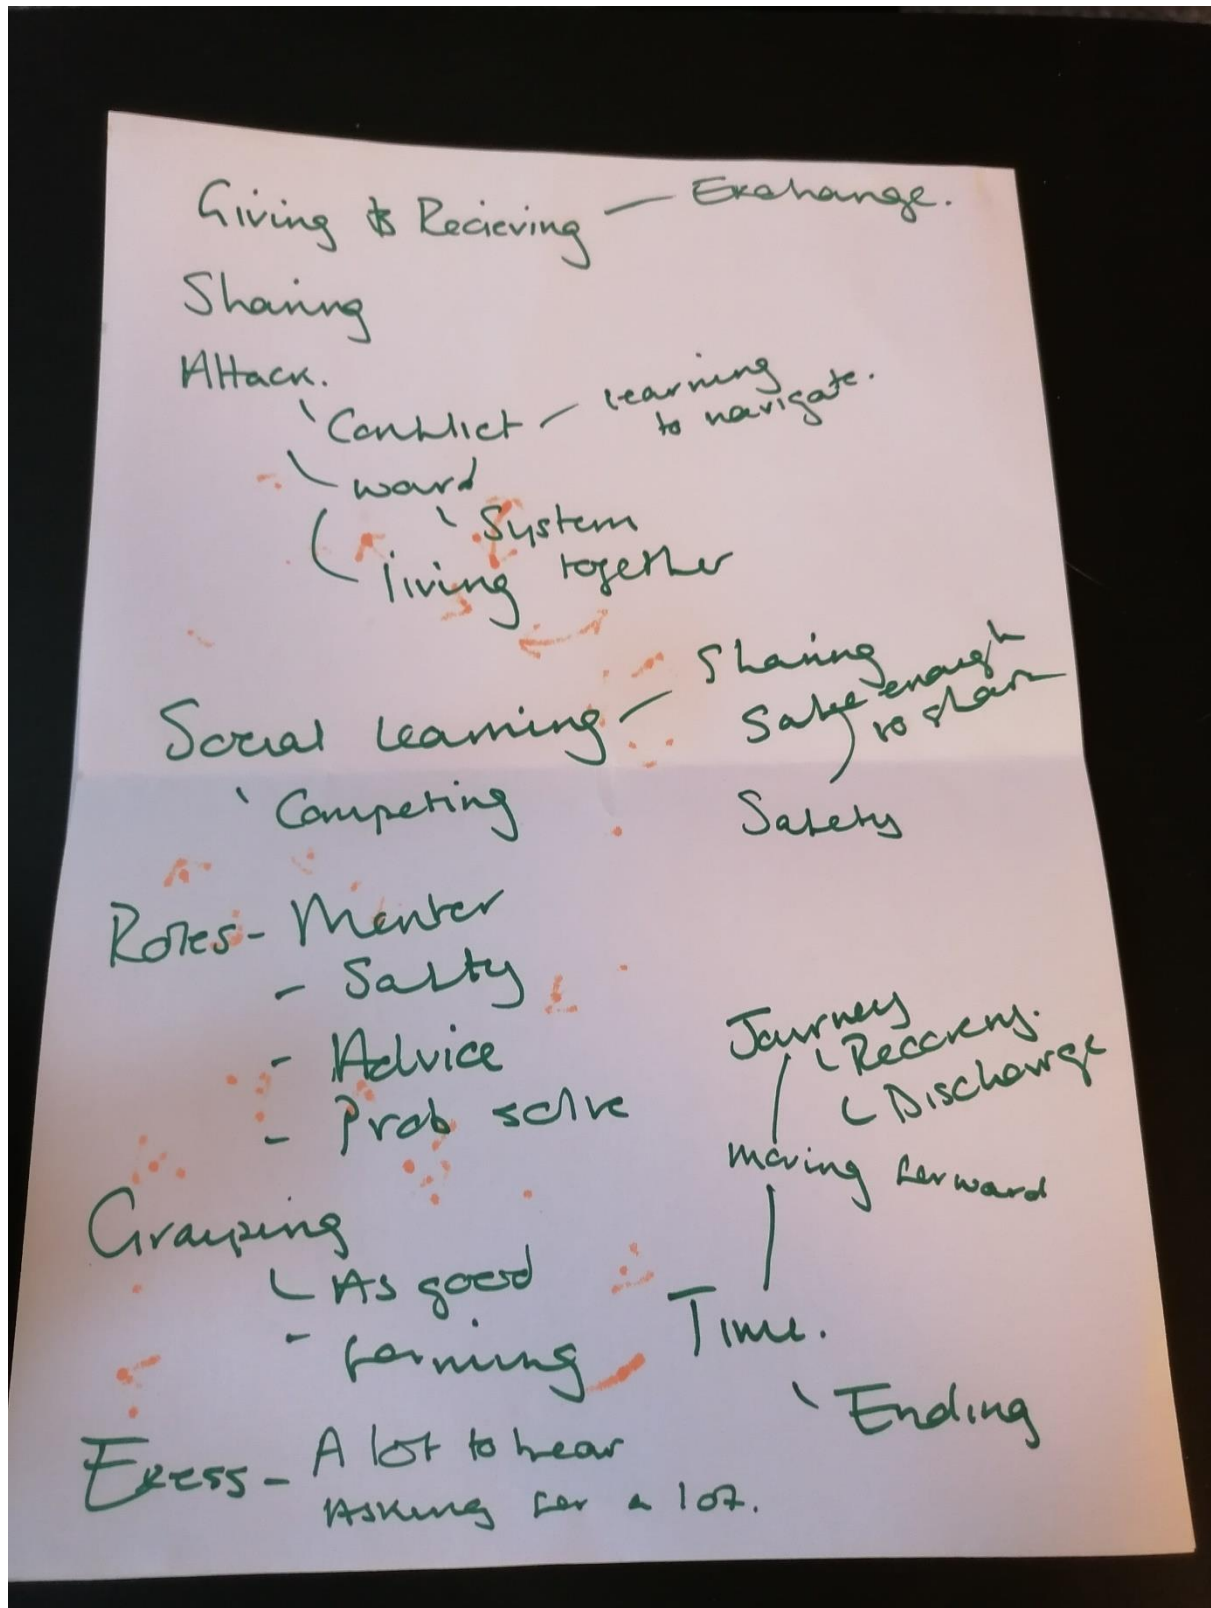 Giving & Recieving — Exchange.
Sharing
Attack.
Conflict — learning
to navigate.
ward
System
living together
Social learning — Sharing
Safe enough
to share
Safety
Competing
Roles - Mentor
- Salty
- Advice
- Prob solve
Journey
Recovery.
Discharge
moving forward
Time.
Ending
Grouping
As good
- forming
Exess - A lot to hear
Asking for a lot.